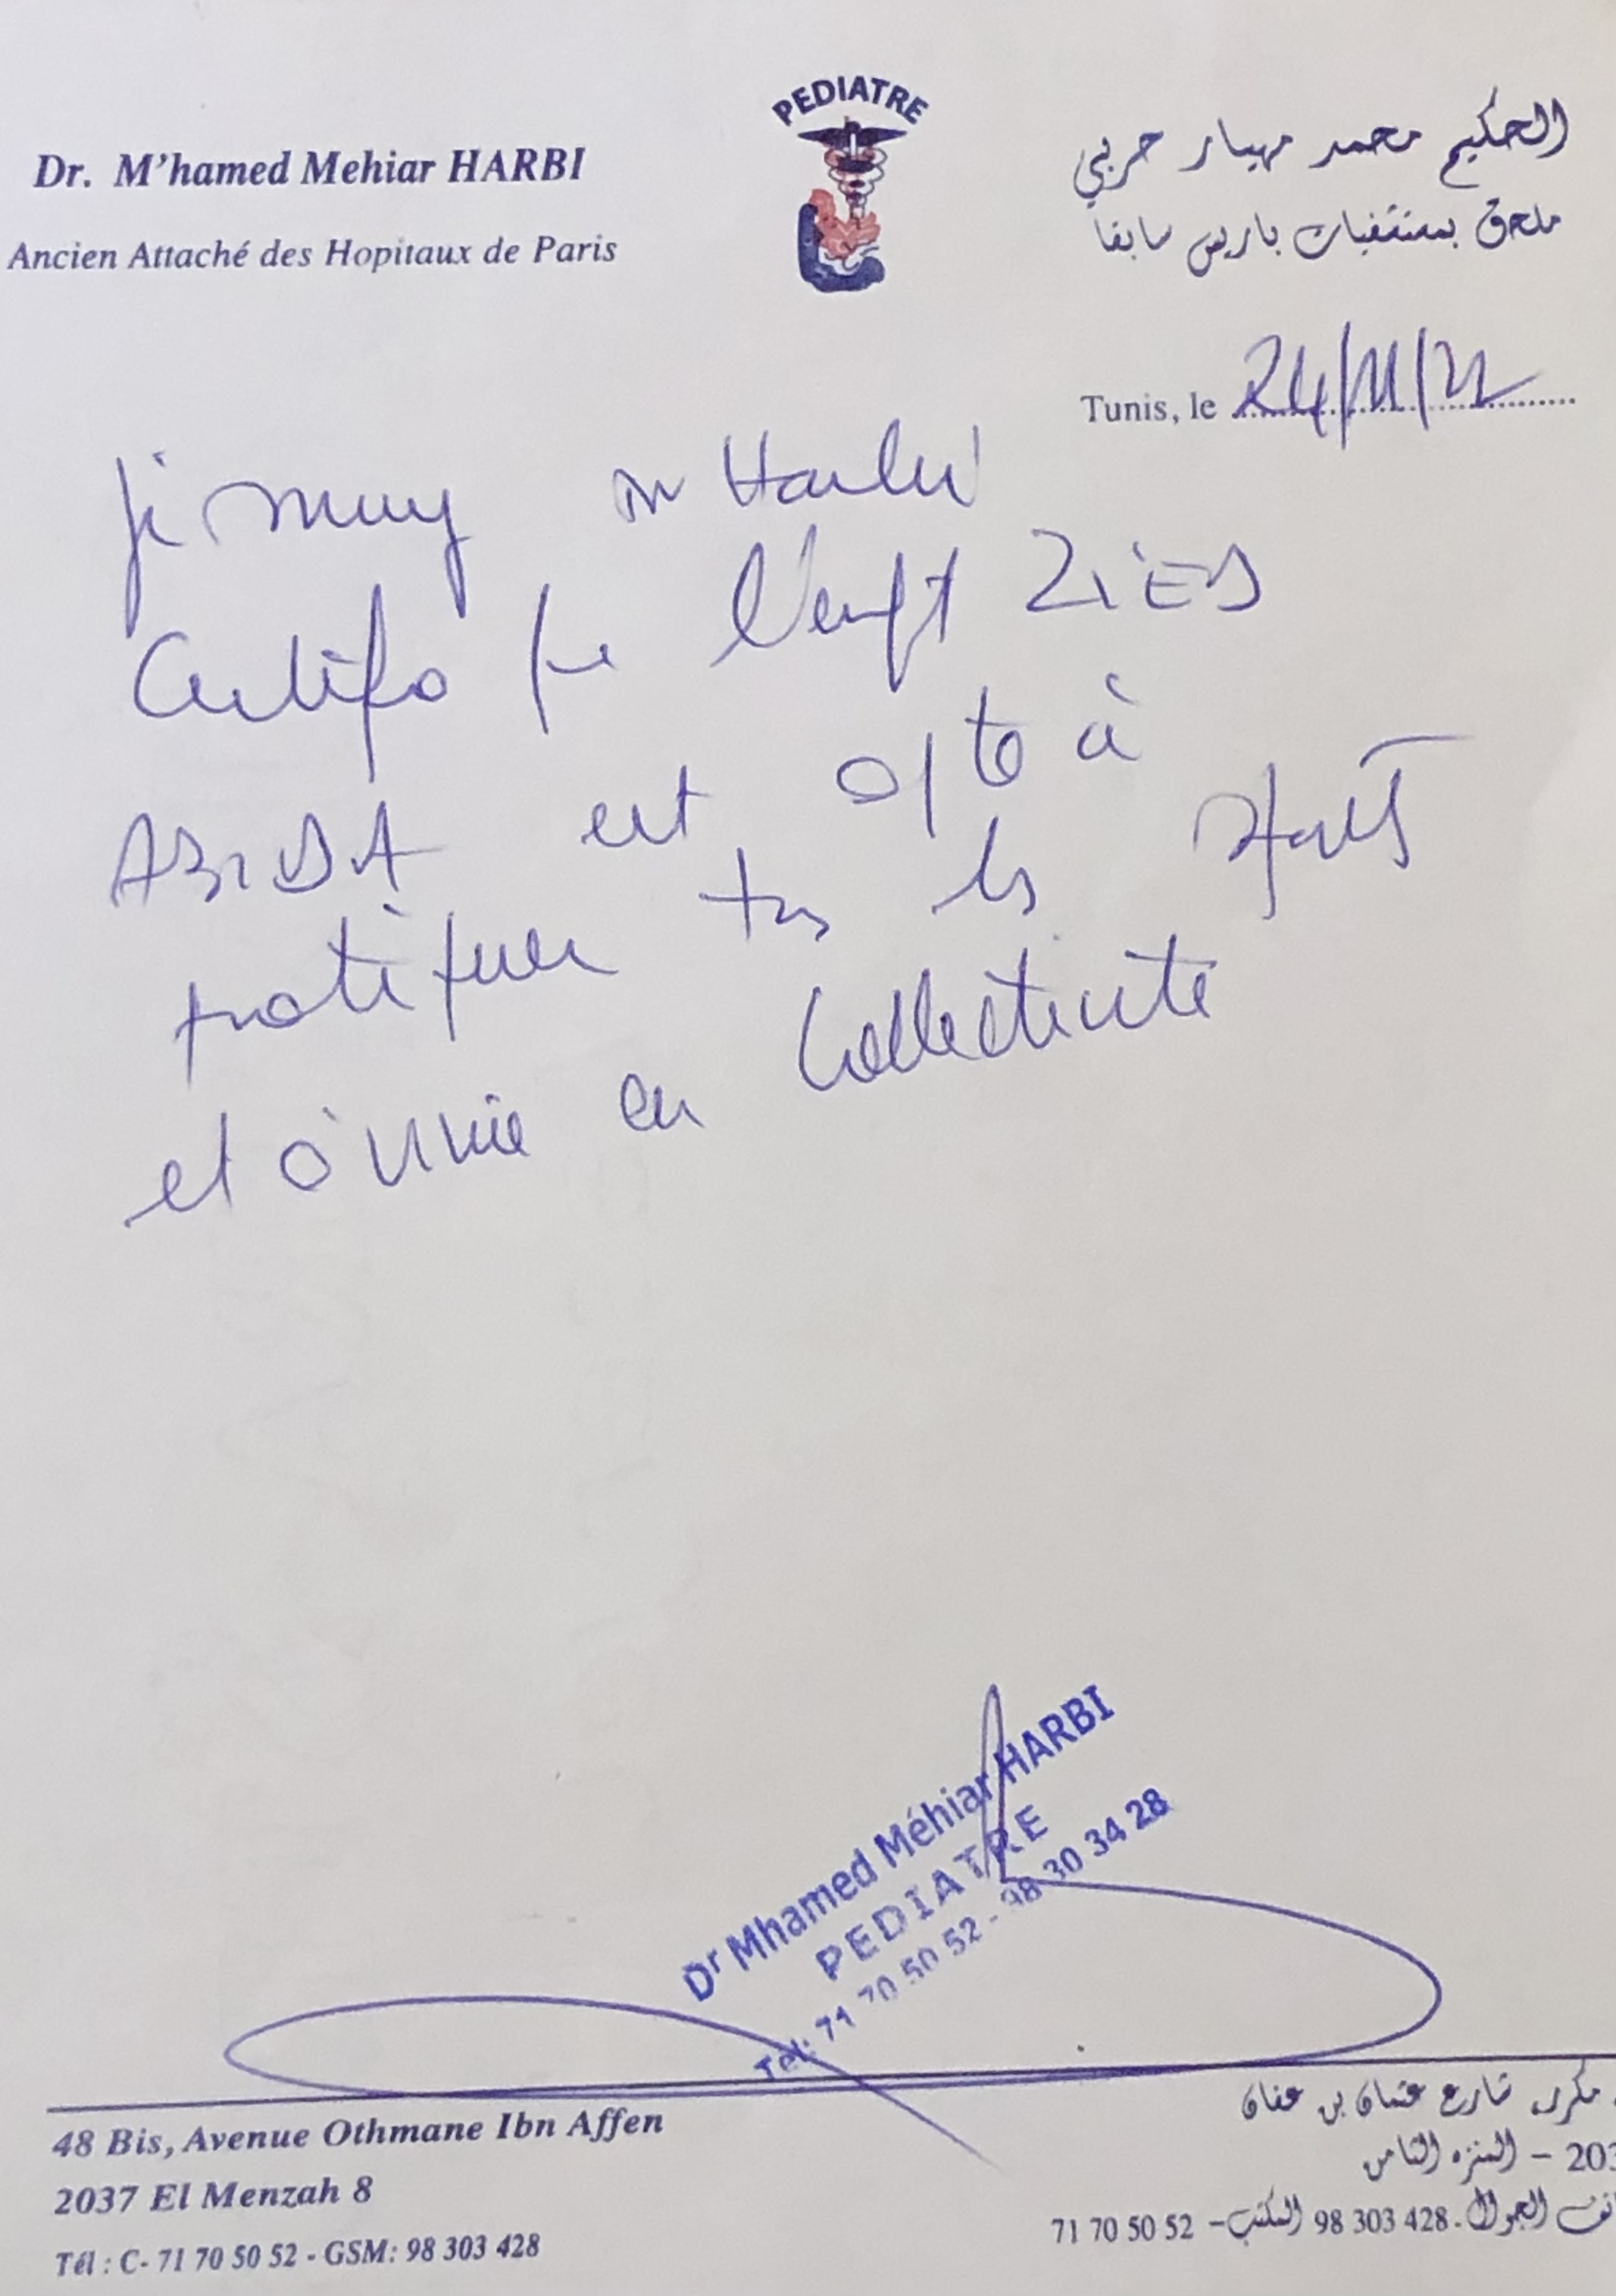 PEDIATRE
Dr. M'hamed Mehiar HARBI
Ancien Attaché des Hopitaux de Paris
الحكيم محمد مهيار حربي
ملحق بمستشفيات باريس سابقا
Tunis, le 24/11/22
Je Dr Harbi
Certifie que l'enft ZIED
ABIDA est apte à
pratiquer tos les sports
et à vivre en Collectivité
Dr Mhamed Méhiar HARBI
PEDIATRE
Tél: 71 70 50 52 - 98 30 34 28
48 Bis, Avenue Othmane Ibn Affen
2037 El Menzah 8
Tél : C- 71 70 50 52 - GSM: 98 303 428
مكرر، شارع عثمان بن عفان
203 – المنزه الثامن
الجوال 98 303 428 – المكتب 71 70 50 52